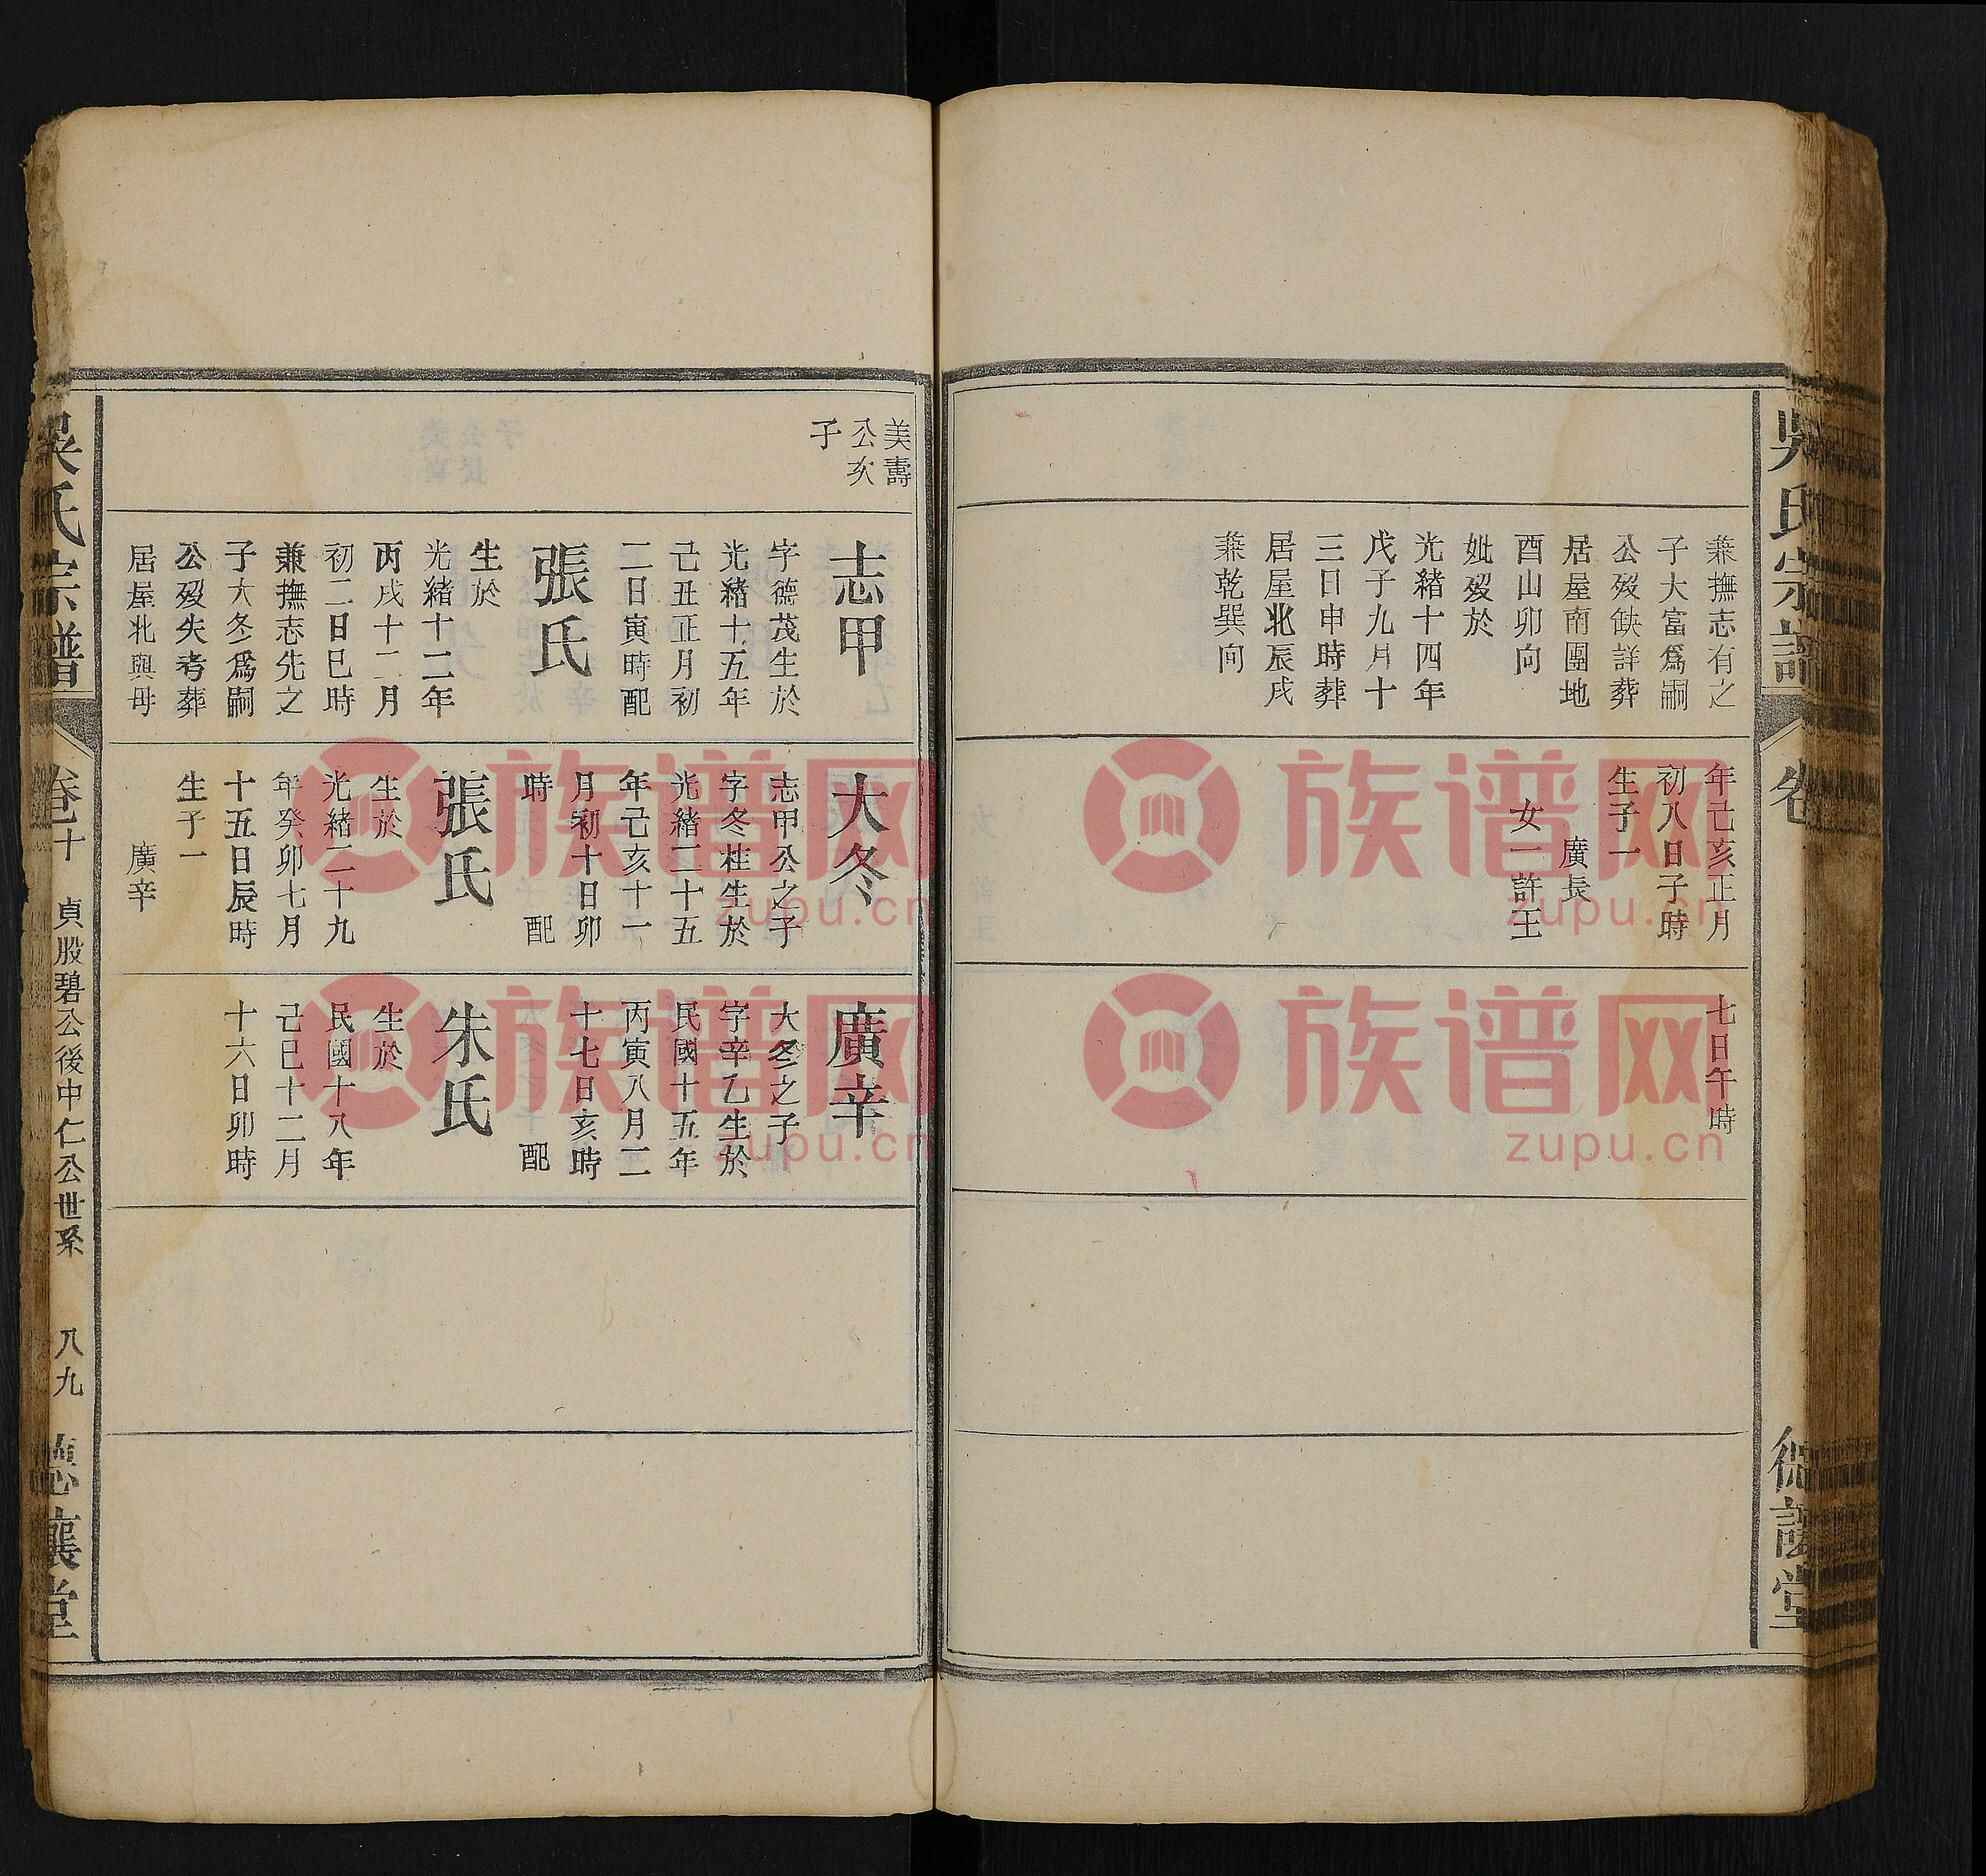 吳氏宗譜
卷
德讓堂
兼撫志有之
子大富爲嗣
公歿缺詳葬
居屋南團地
酉山卯向
妣歿於
光緒十四年
戊子九月十
三日申時葬
居屋北辰戌
兼乾巽向
年己亥正月
初八日子時
生子一
廣長
女一許王
七日午時
美壽
公次
子
志甲
字德茂生於
光緒十五年
己丑正月初
二日寅時配
張氏
生於
光緒十二年
丙戌十二月
初二日巳時
兼撫志先之
子大冬爲嗣
公歿失考葬
居屋北與母
大冬
志甲公之子
字冬桂生於
光緒二十五
年己亥十一
月初十日卯
時 配
張氏
生於
光緒二十九
年癸卯七月
十五日辰時
生子一
廣辛
廣辛
大冬之子
字辛乙生於
民國十五年
丙寅八月二
十七日亥時
配
朱氏
生於
民國十八年
己巳十二月
十六日卯時
吳氏宗譜
卷十
貞股碧公後中仁公世系
八九
德讓堂
族谱网
zupu.cn
族谱网
zupu.cn
族谱网
zupu.cn
族谱网
zupu.cn